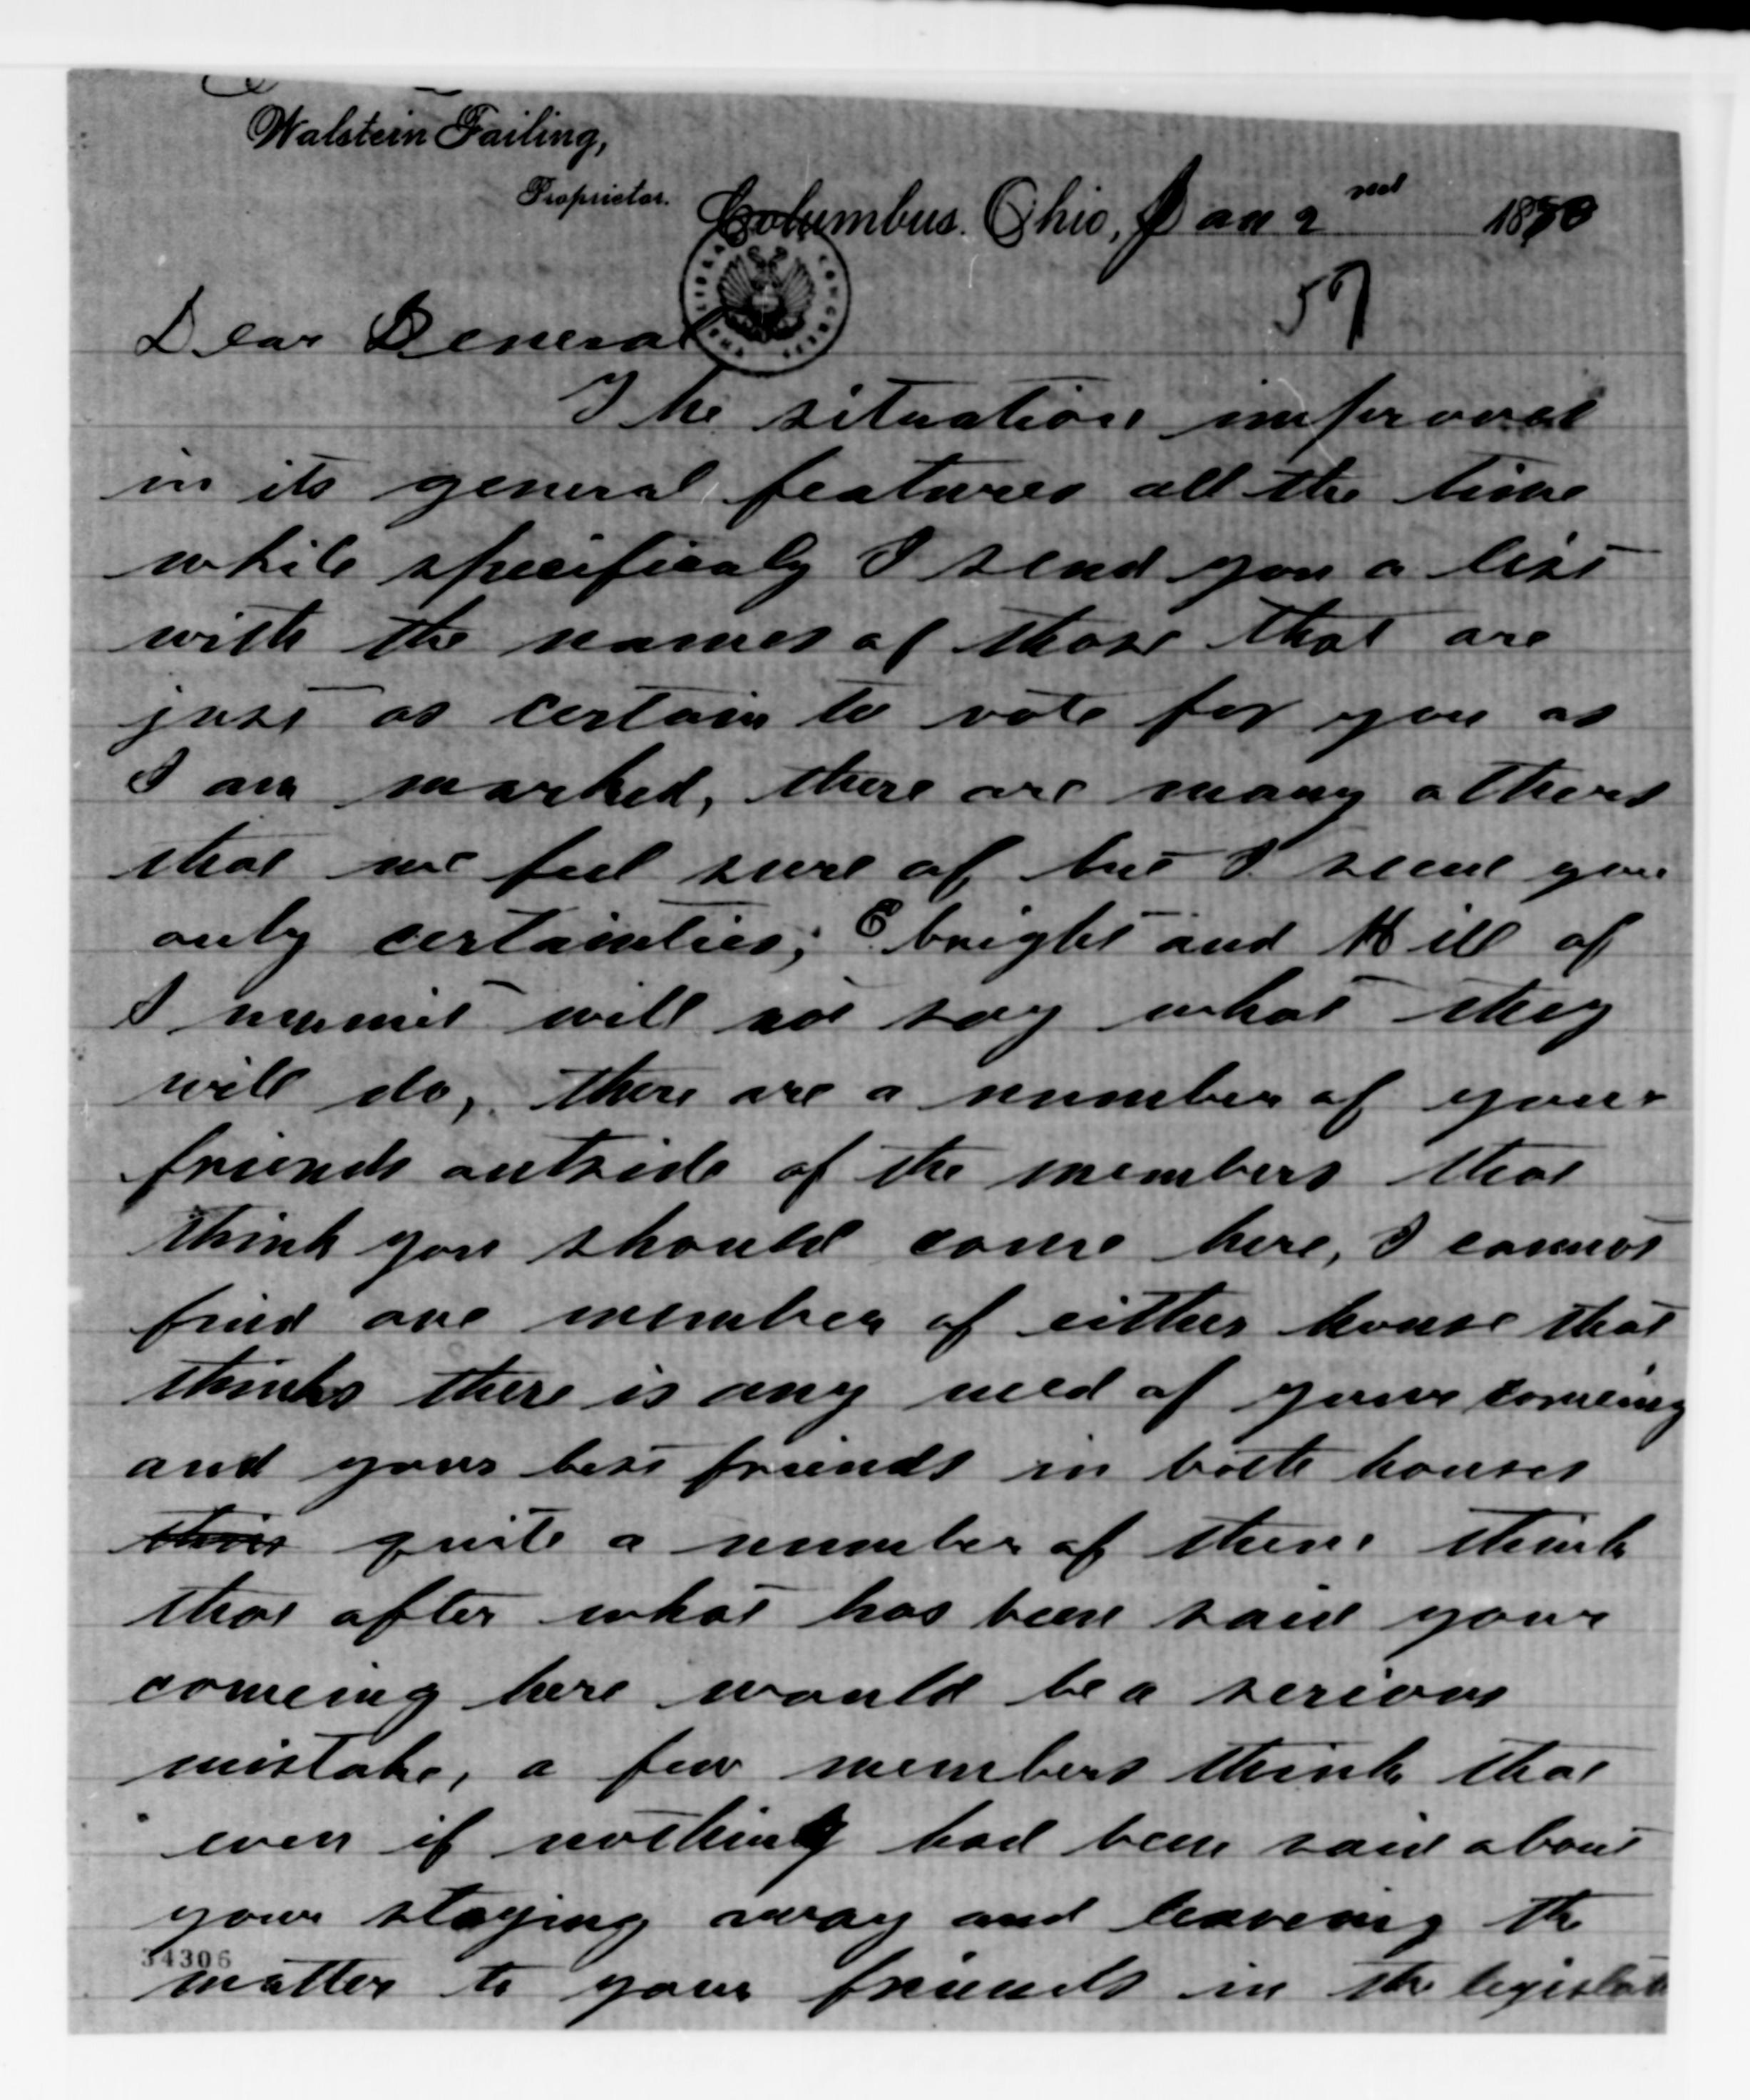 Walstein Failing,
Proprietor.
Columbus. Ohio, Jan 2nd 1880
57
Dear General
The situation improves
in its general features all the time
while specificaly I send you a list
with the names of those that are
just as certain to vote for you as
I am marked, there are many others
that we feel sure of but I send you
only certainties; Ebright and Hill of
Summit will not say what they
will do, there are a number of your
friends outside of the members that
think you should come here, I cannot
find one member of either house that
thinks there is any need of your comeing
and your best friends in both houses
quite a number of them think
that after what has been said your
comeing here would be a serious
mistake, a few members think that
even if nothing had been said about
your staying away and leaveing the
matter to your friends in the legislature
34306